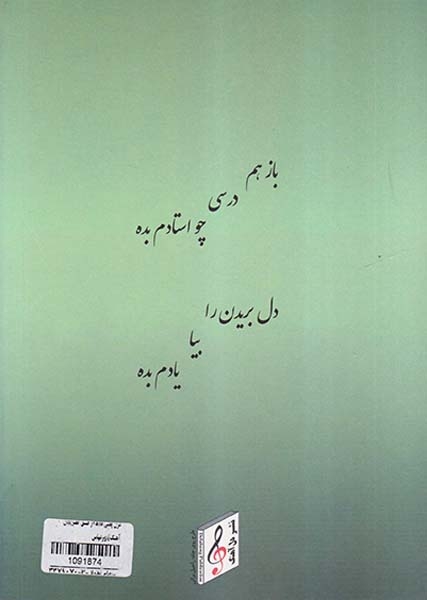 باز هم
درسی
چو استادم بده
دل بریدن را
بیا
یادم بده
1091874